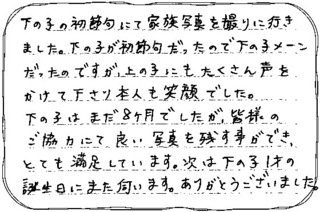 下の子の初節句にて家族写真を撮りに行き
ました。下の子が初節句だったので下の子メーン
だったのですが、上の子にもたくさん声を
かけて下さり本人も笑顔でした。
下の子はまだ8ヶ月でしたが、皆様の
ご協力にて良い写真を残す事ができ、
とても満足しています。次は下の子1才の
誕生日にまた伺います。ありがとうございました。